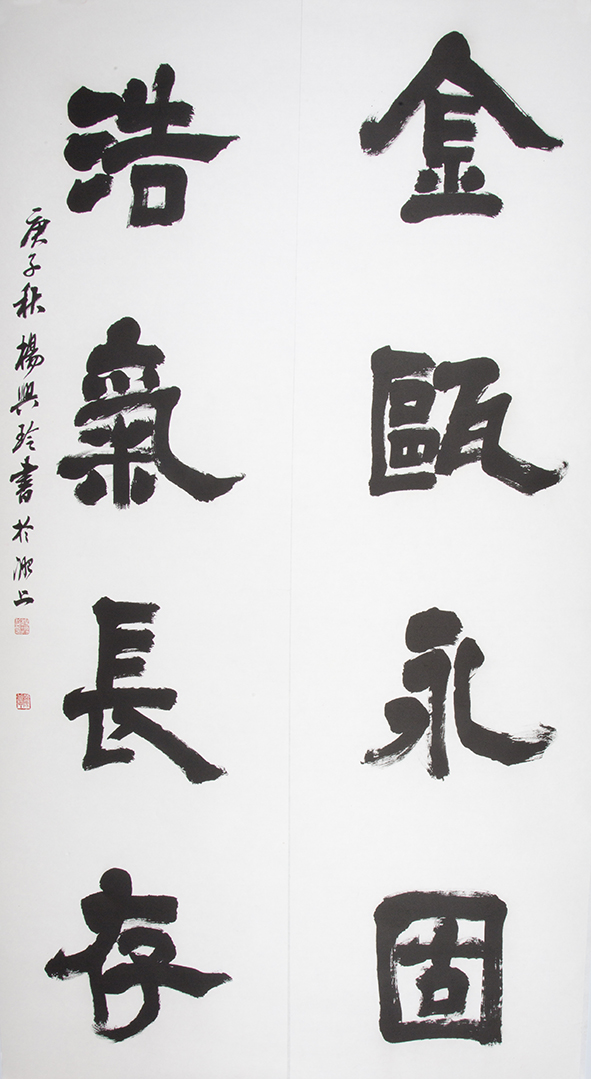 金甌永固
浩氣長存
庚子秋楊興玲書於上